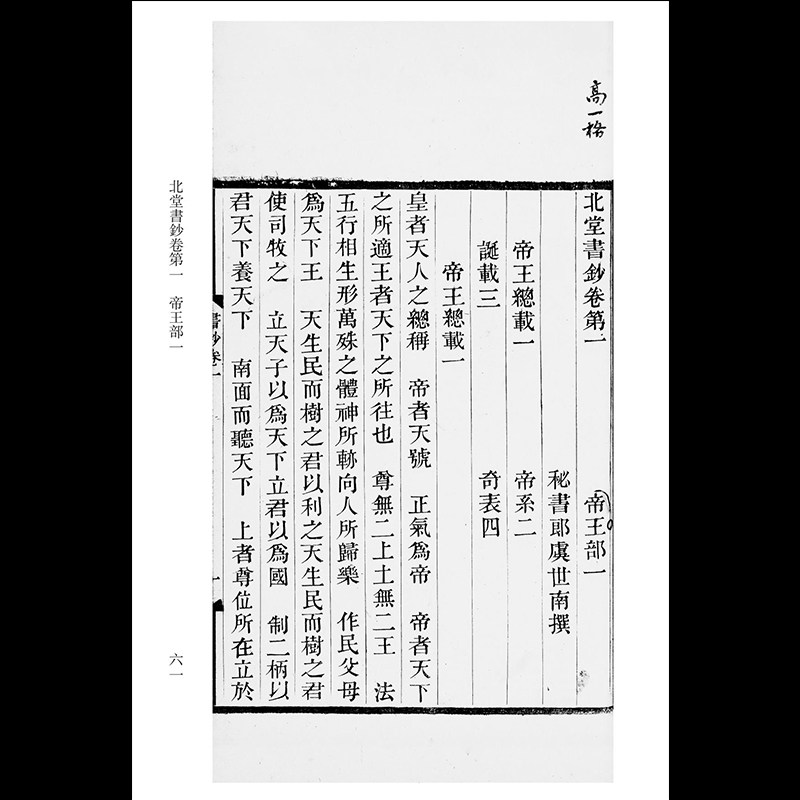 高一格
北堂書鈔卷第一　帝王部一
秘書郎虞世南撰
帝王總載一　帝系二
誕載三　奇表四
帝王總載一
皇者天人之總稱　帝者天號　正氣爲帝　帝者天下
之所適王者天下之所往也　尊無二上土無二王　法
五行相生形萬殊之體神所動向人所歸樂　作民父母
爲天下王　天生民而樹之君以利之天生民而樹之君
使司牧之　立天子以爲天下立君以爲國　制二柄以
君天下養天下　南面而聽天下　上者尊位所在立於
書鈔卷一
一
北堂書鈔卷第一　帝王部一
六一